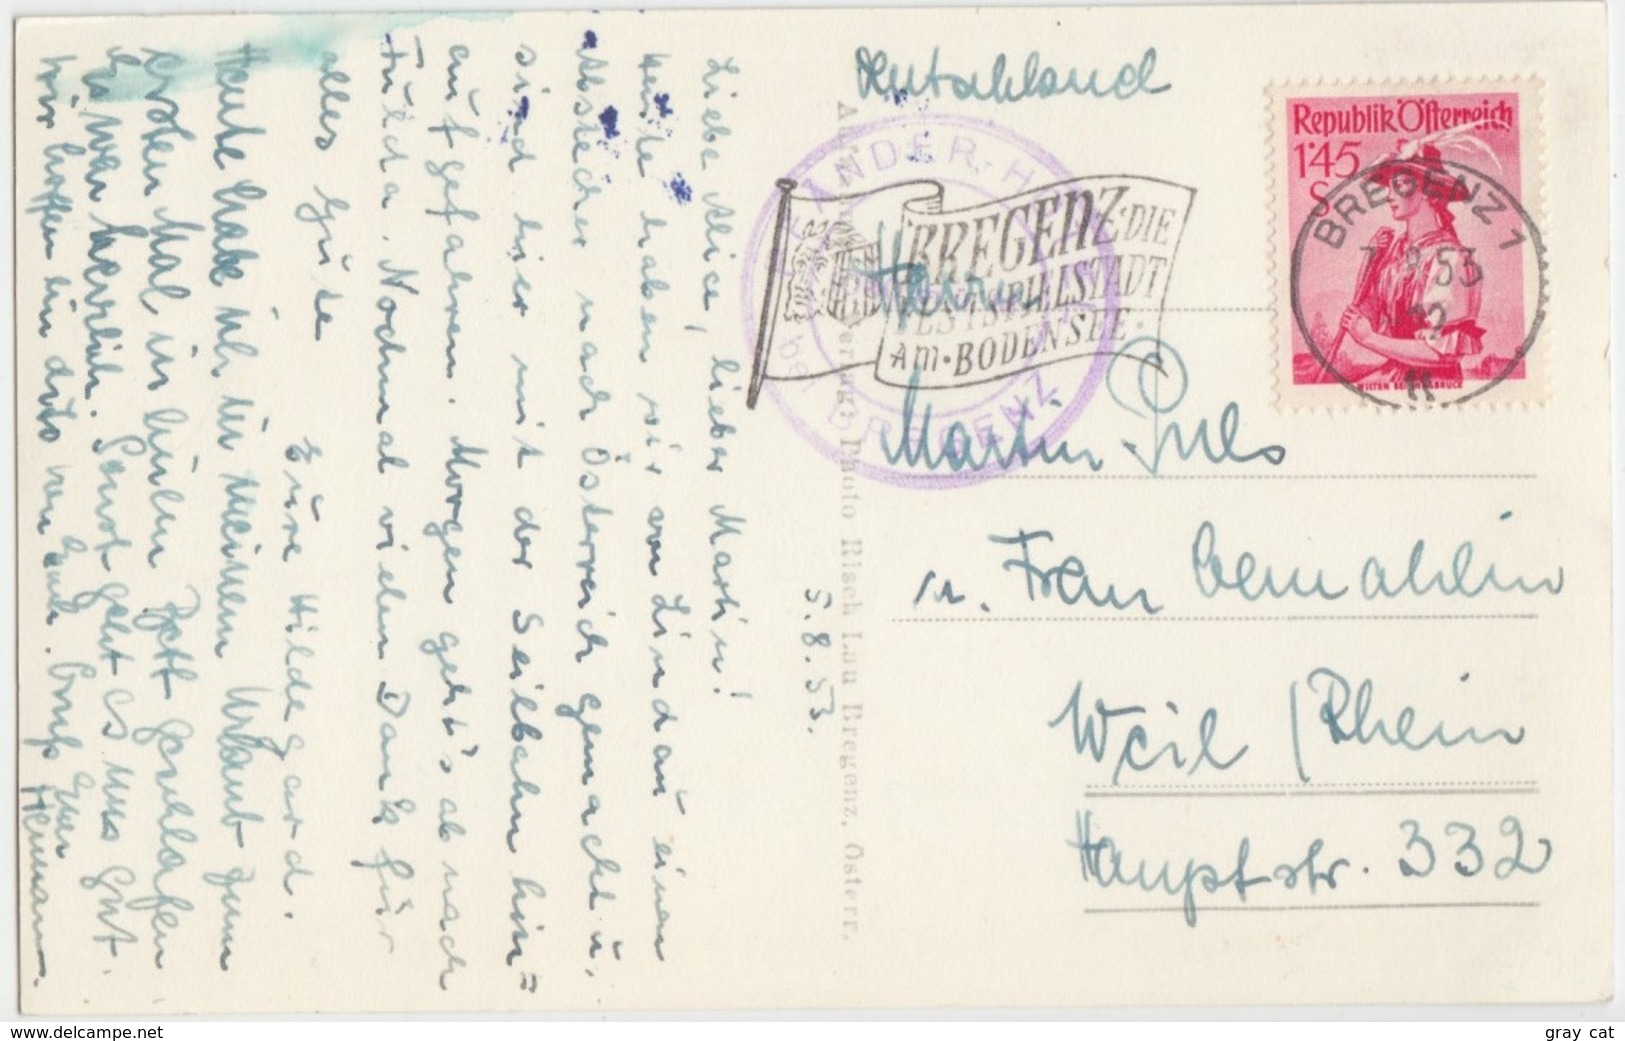 Liebe Alice, lieber Martin!
heute haben wir von Lindau einen
Abstecher nach Österreich gemacht u.
sind hier mit der Seilbahn hin=
aufgefahren. Morgen geht's ab nach
Fulda. Nochmal vielen Dank für
alles Gute
Eure Hildegard.
Heute habe ich in meinem Urlaub zum
ersten Mal in einem Bett geschlafen
Es war herrlich. Sonst geht es uns gut.
wir hoffen ein dito von Euch. Gruß Euer
Hermann.
5.8.53.
Photo Risch Lau Bregenz, Österr.
Deutschland
Herrn
Martin
u. Frau Gemahlin
Weil / Rhein
Hauptstr. 332
BREGENZ·DIE
FESTSPIELSTADT
AM·BODENSEE·
bei BREGENZ
Republik Österreich
1'45
S
BREGENZ 1
53
gray cat
www.delcampe.net